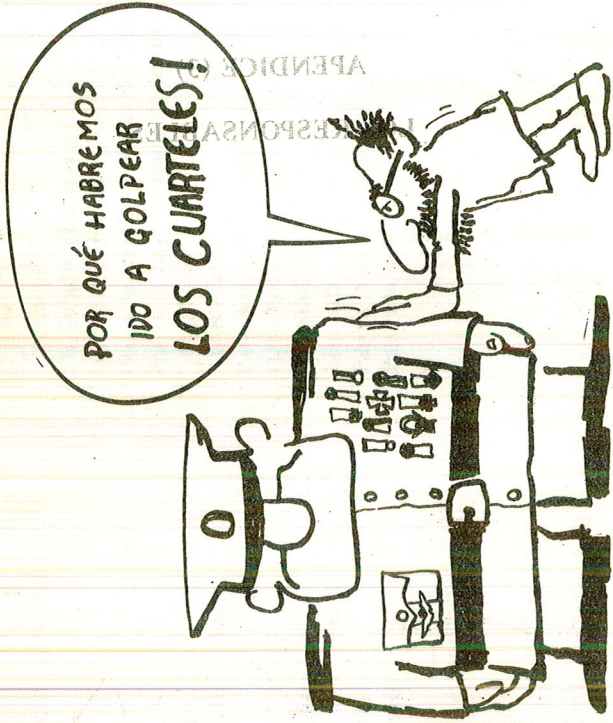 POR QUÉ HABREMOS
IDO A GOLPEAR
LOS CUARTELES!
APENDICE (3)